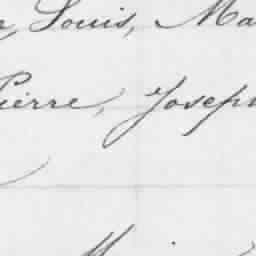 Louis, Ma
Pierre, Joseph